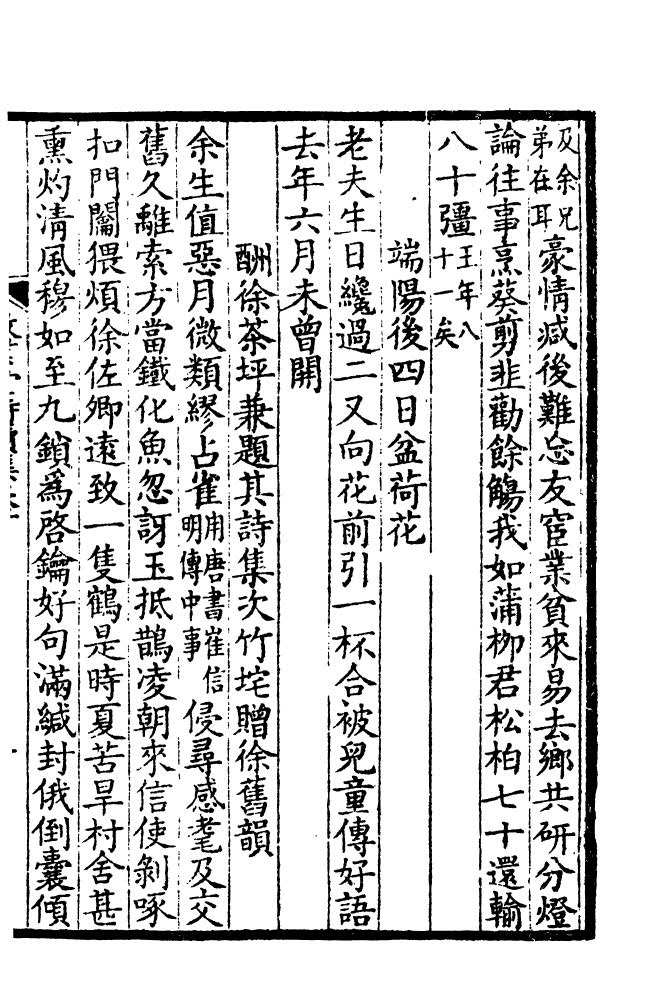 及余兄弟在耳豪情減後難忘友宦業貧來易去鄉共研分燈
論往事烹葵剪韭勸餘觴我如蒲柳君松柏七十還輸
八十彊王年八十一矣
端陽後四日盆荷花
老夫生日纔過二又向花前引一杯合被兒童傳好語
去年六月未曾開
酬徐茶坪兼題其詩集次竹垞贈徐舊韻
余生值惡月微類繆占雀用唐書崔信明傳中事侵尋感耄及交
舊久離索方當鐵化魚忽訝玉抵鵲凌朝來信使剝啄
扣門闔猥煩徐佐卿遠致一隻鶴是時夏苦旱村舍甚
熏灼清風穆如至九鎖為啓鑰好句滿緘封俄倒囊傾